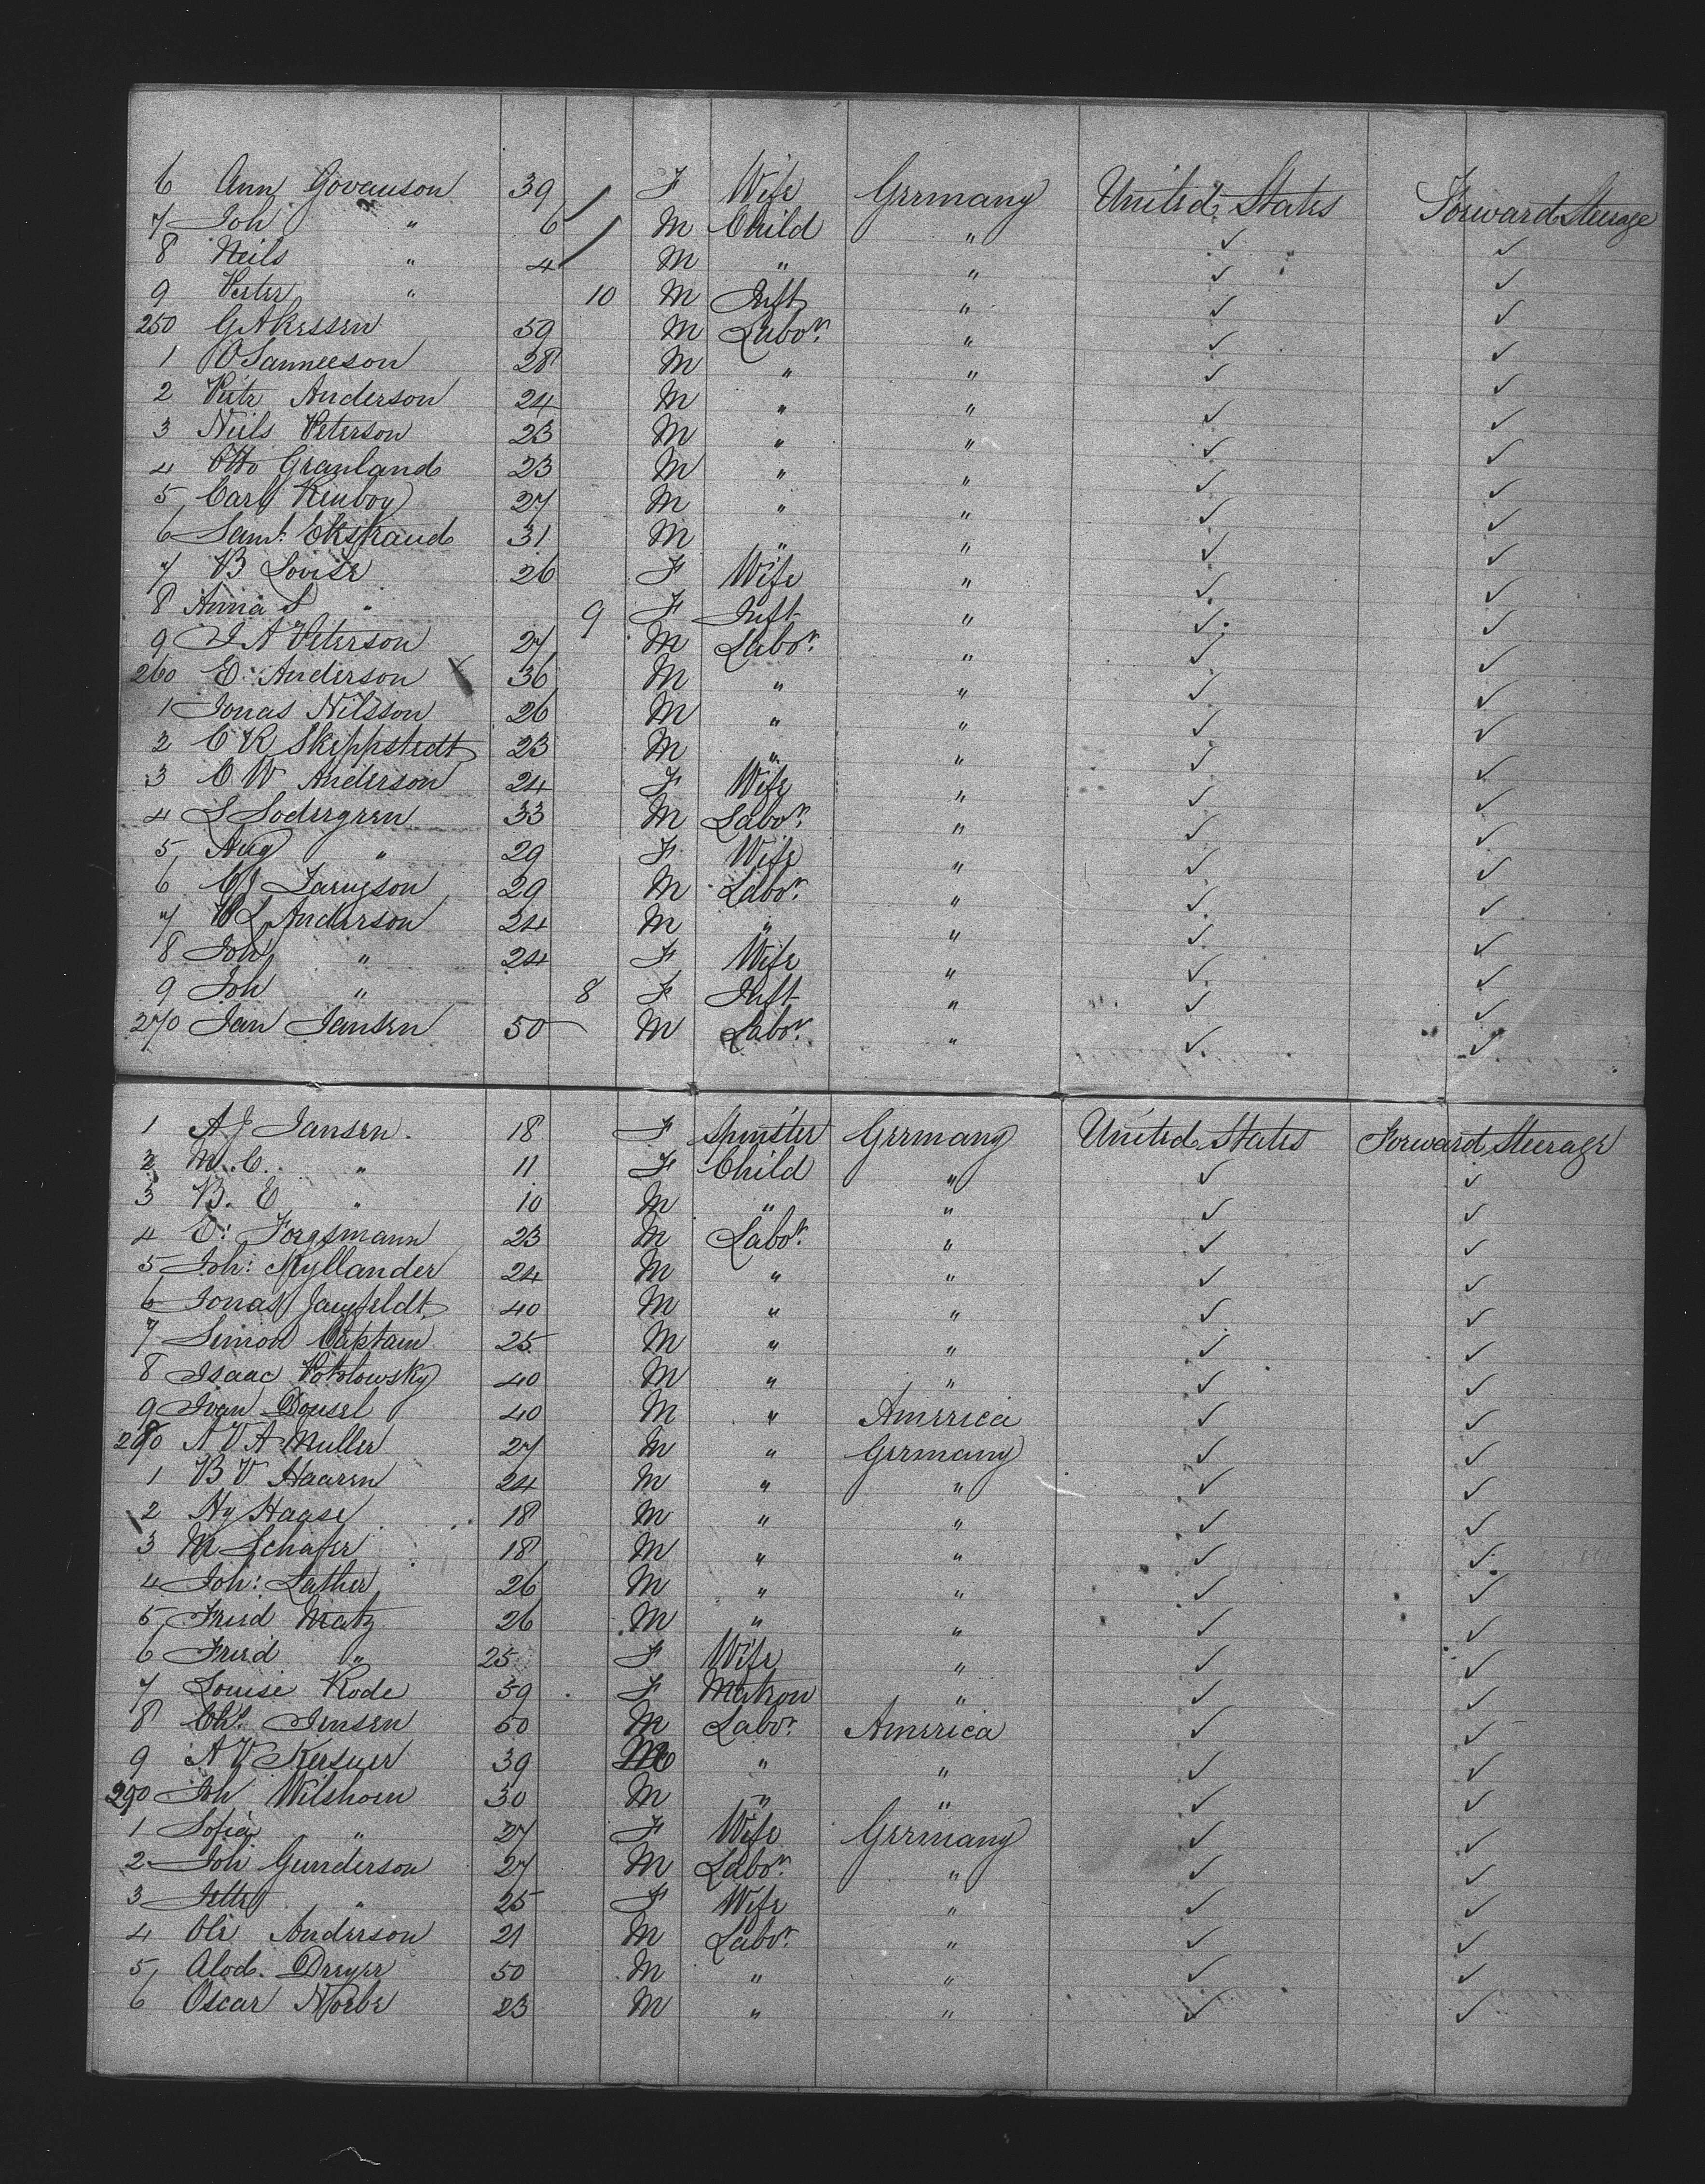 6 Ann Govanson 39 F Wife Germany United States Forward Steerage
7 Joh " 6 M Child " ✓ ✓
8 Neils " 4 M " " ✓ ✓
9 Peter " 10 M Inft " ✓ ✓
250 G Akessen 59 M Labor. " ✓ ✓
1 O Sanneeson 28 M " " ✓ ✓
2 Petr Anderson 24 M " " ✓ ✓
3 Niels Peterson 23 M " " ✓ ✓
4 Otto Granland 23 M " " ✓ ✓
5 Carl 27 M " " ✓ ✓
6 Saml. Ekstraud 31 M " " ✓ ✓
7 B Lovise 26 F Wife " ✓ ✓
8 Anna S " 9 F Inft " ✓ ✓
9 J A Peterson 27 M Labor. " ✓ ✓
260 E. Anderson 36 M " " ✓ ✓
1 Jonas Nilsson 26 M " " ✓ ✓
2 C R Skippstedt 23 M " " ✓ ✓
3 C W Anderson 24 F Wife " ✓ ✓
4 L Sodergren 33 M Labor. " ✓ ✓
5 Aug " 29 F Wife " ✓ ✓
6 C J 29 M Labor. " ✓ ✓
7 P L Anderson 24 M " " ✓ ✓
8 Joh " 24 F Wife " ✓ ✓
9 Joh " 8 F Inft " ✓ ✓
270 Jan Jansen 50 M Labor. " ✓ ✓
1 A J Jansen 18 F Spinster Germany United States Forward Steerage
2 M. C. " 11 F Child " ✓ ✓
3 B. E " 10 M " " ✓ ✓
4 E: Forgsmann 23 M Labor. " ✓ ✓
5 Joh: Myllander 24 M " " ✓ ✓
6 Jonas 40 M " " ✓ ✓
7 Simon Captain 25 M " " ✓ ✓
8 Isaac 40 M " " ✓ ✓
9 Ivan Dousel 40 M " America ✓ ✓
280 A V A Muller 27 M " Germany ✓ ✓
1 B V Haaren 24 M " " ✓ ✓
2 Hy Haase 18 M " " ✓ ✓
3 M Schafer 18 M " " ✓ ✓
4 Joh: Lather 26 M " " ✓ ✓
5 Fried Matz 26 M " " ✓ ✓
6 Fried " 25 F Wife " ✓ ✓
7 Louise Rode 59 F Matron " ✓ ✓
8 Chs. Jensen 50 M Labor. America ✓ ✓
9 A V Kersuer 39 M " " ✓ ✓
290 Joh Wilshoen 30 M " " ✓ ✓
1 Sofia " 27 F Wife Germany ✓ ✓
2 Joh Gunderson 27 M Labor. " ✓ ✓
3 Jette " 25 F Wife " ✓ ✓
4 Ole Anderson 21 M Labor. " ✓ ✓
5 Alod. Dreyer 50 M " " ✓ ✓
6 Oscar Norbe 23 M " " ✓ ✓